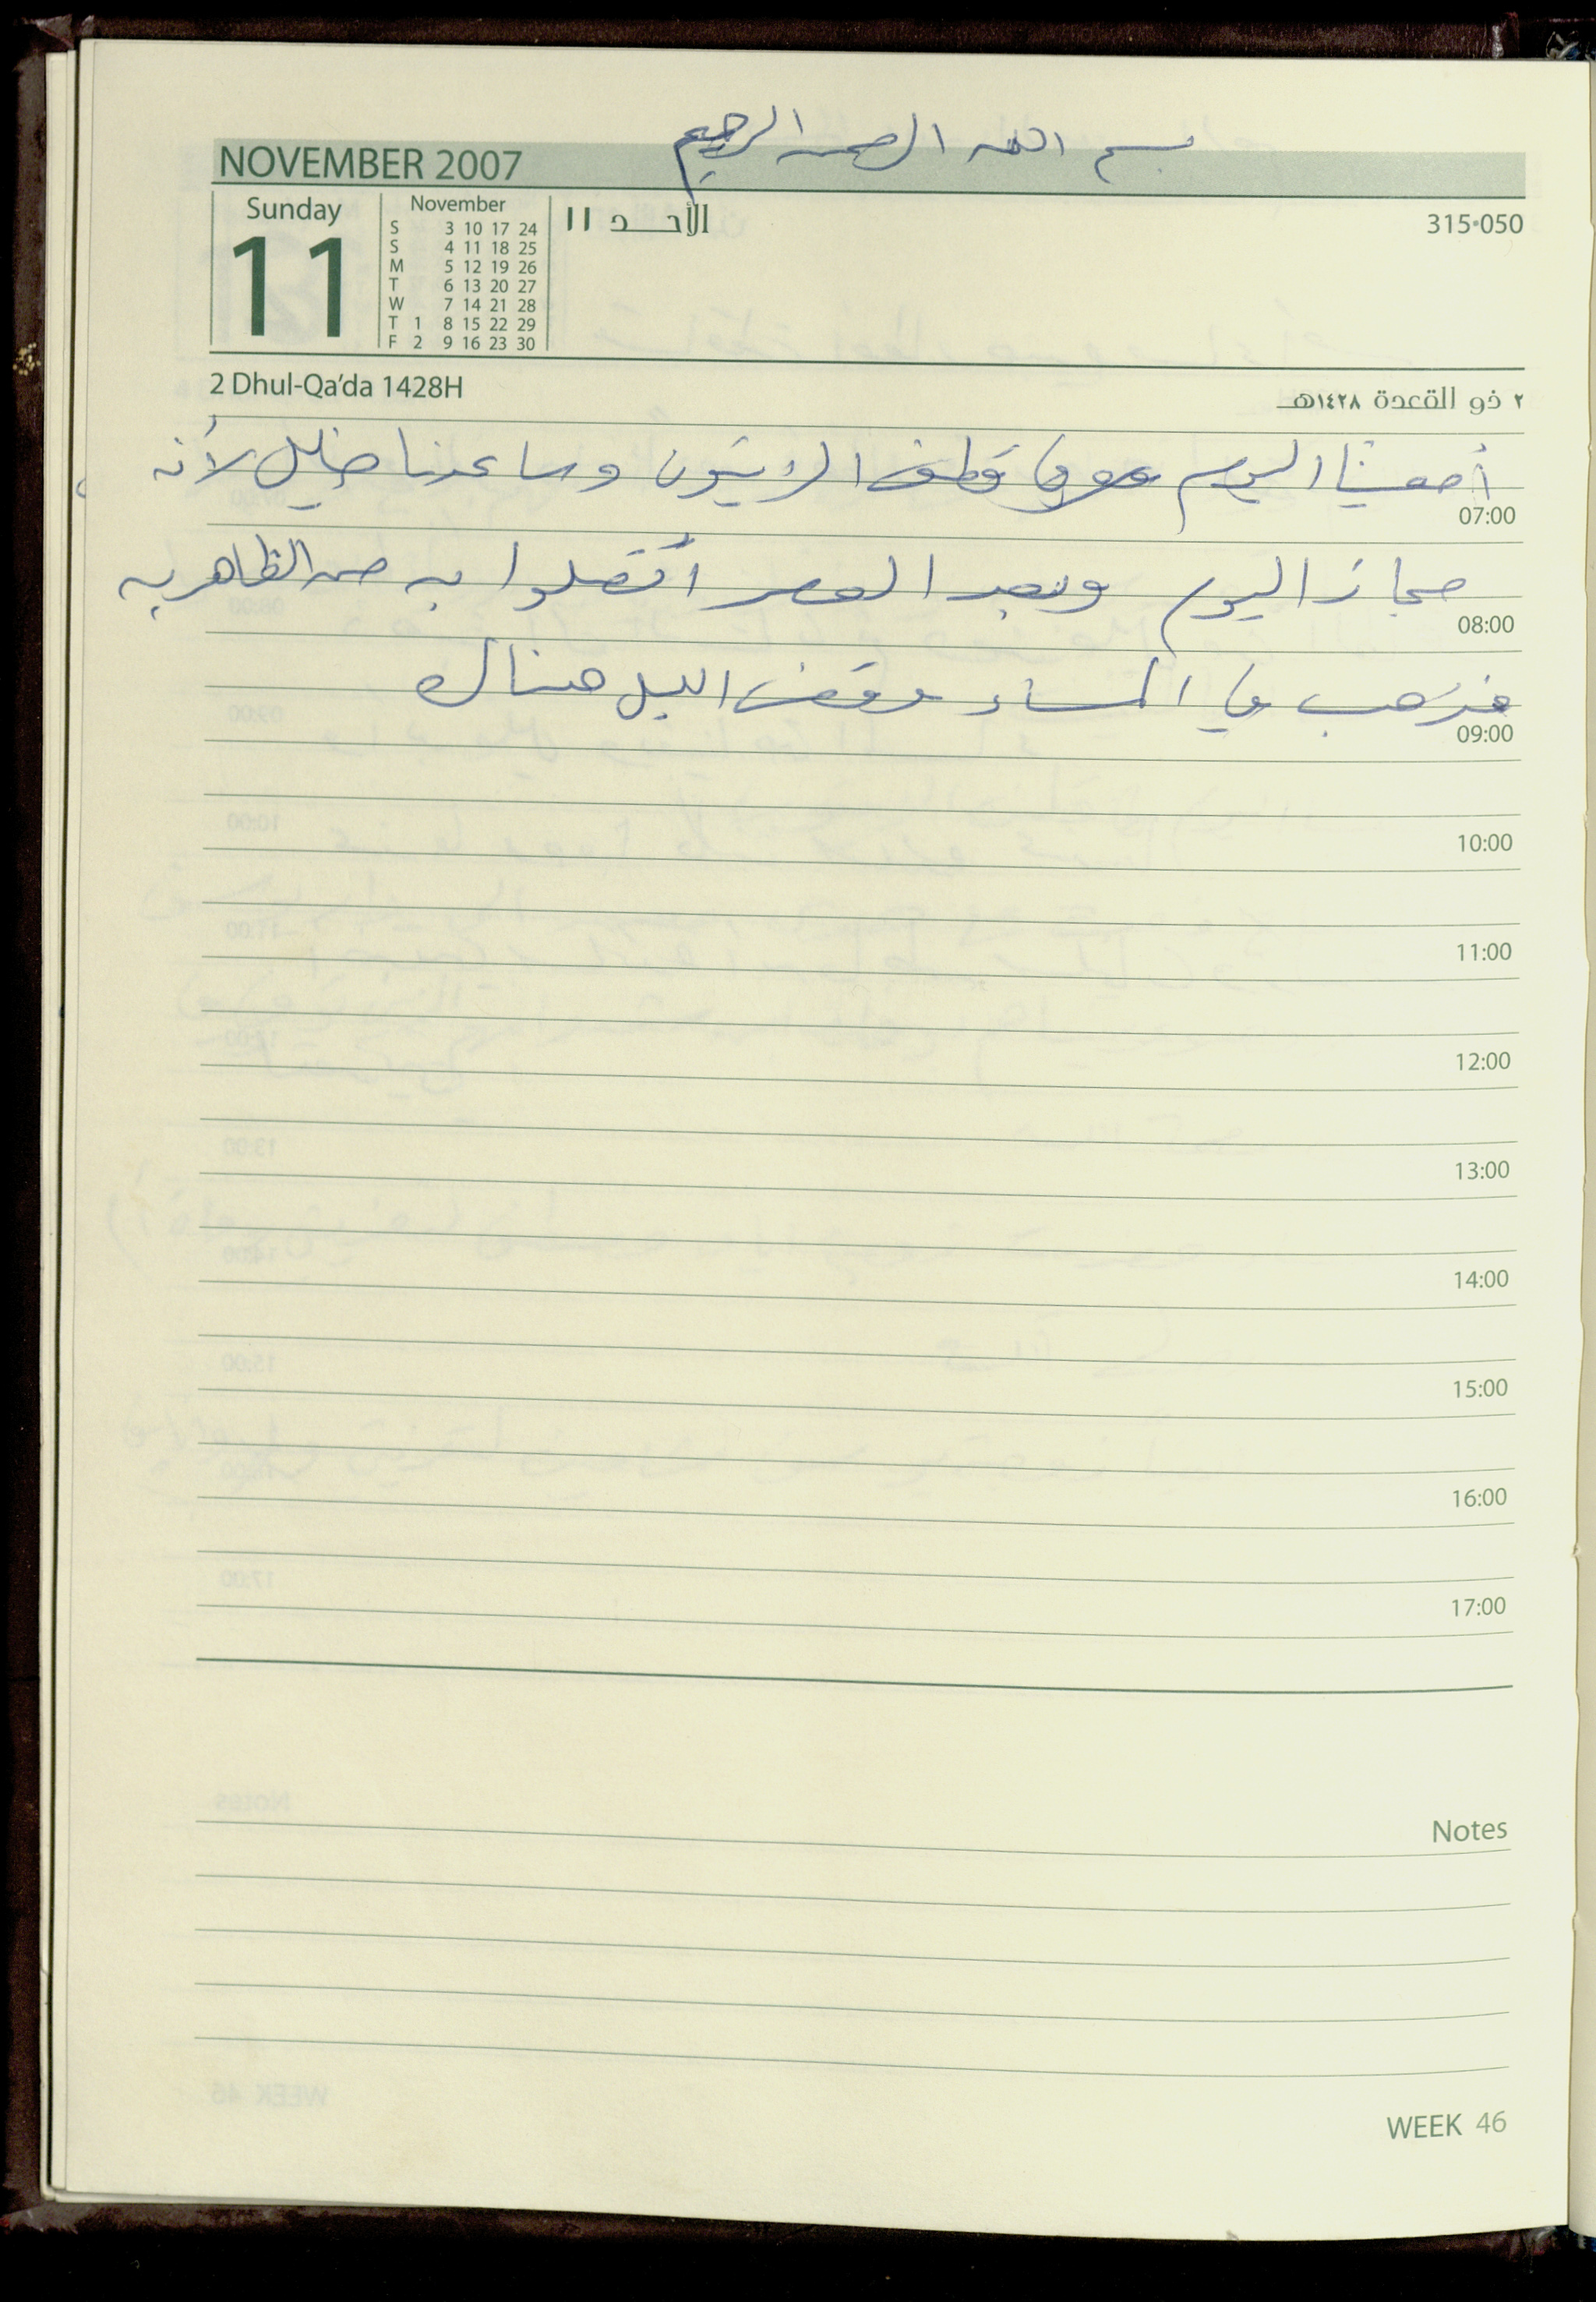 بسم الله الرحمن الرحيم
NOVEMBER 2007
Sunday
11
November
S 3 10 17 24
S 4 11 18 25
M 5 12 19 26
T 6 13 20 27
W 7 14 21 28
T 1 8 15 22 29
F 2 9 16 23 30
الأحد 11
315•050
2 Dhul-Qa'da 1428H
٢ ذو القعدة ١٤٢٨هـ
أمضينا اليوم في قطف الزيتون وساعدنا خليل لأنه
07:00
مجاز اليوم وبعد العصر أتصلوا به من الظاهريه
08:00
فذهب في المساء وقضى الليل هناك
09:00
10:00
11:00
12:00
13:00
14:00
15:00
16:00
17:00
Notes
WEEK 46